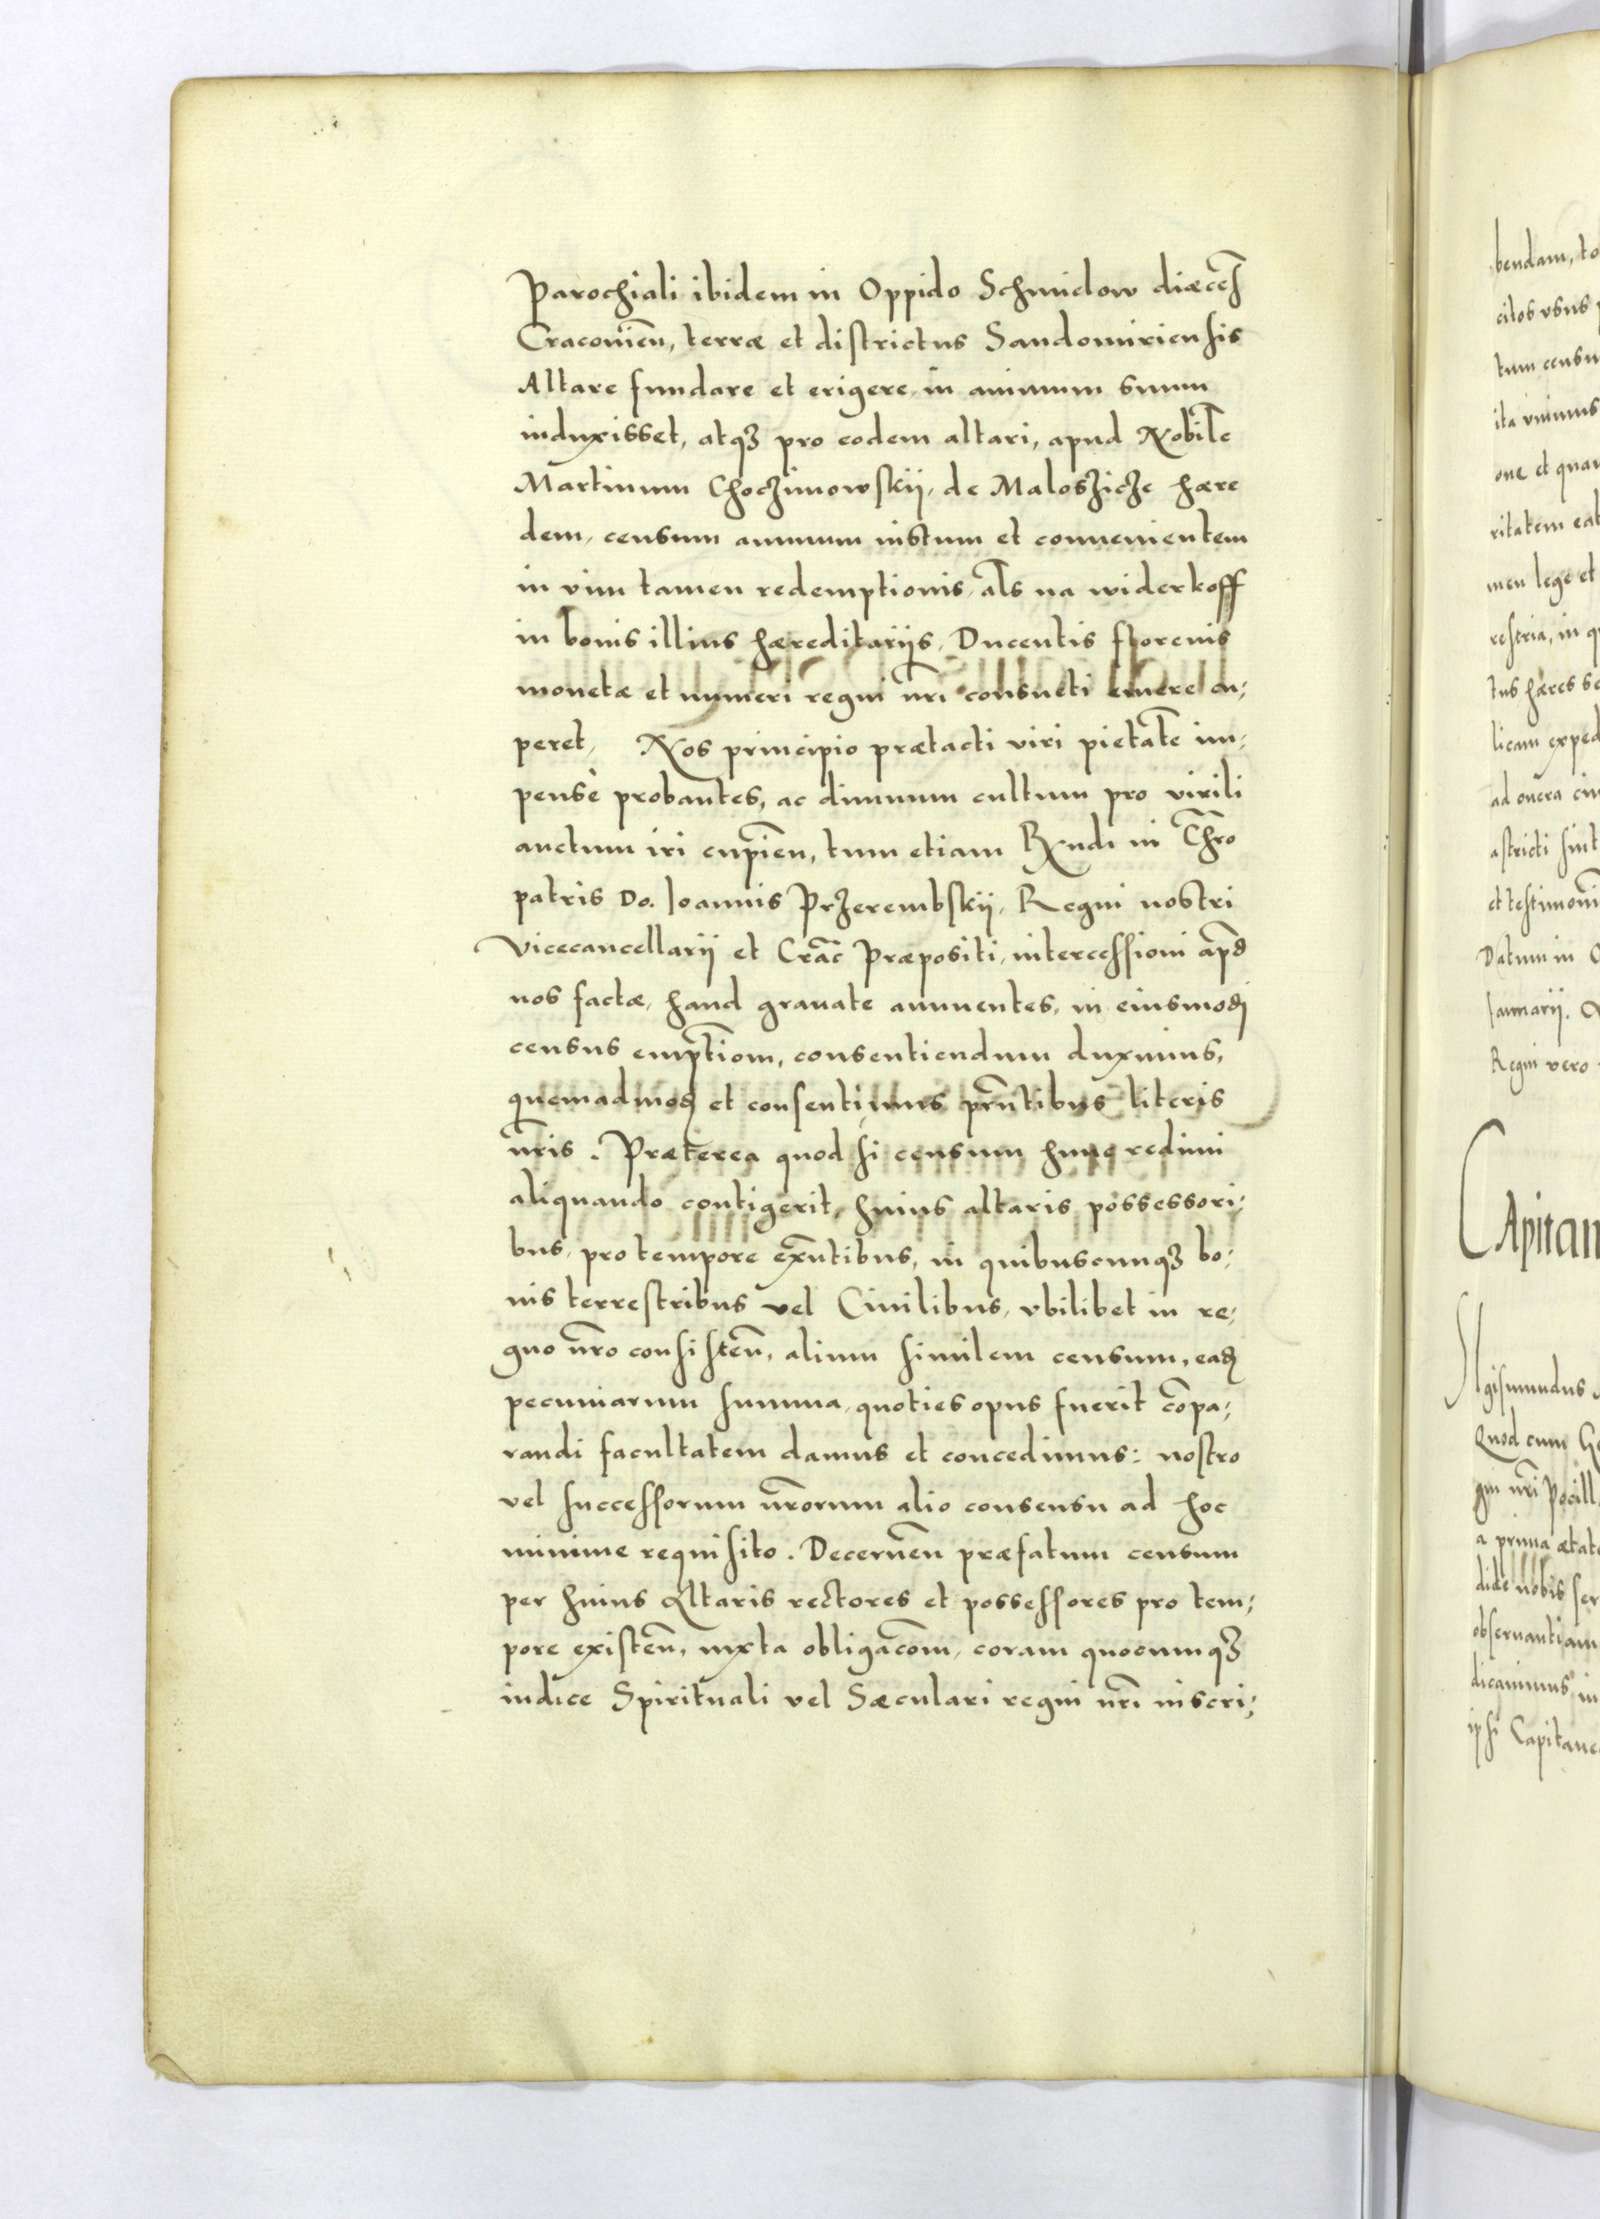 Parochiali ibidem in Oppido Schmidow diæces̄
Cracovien̄, terræ et districtus Sandomiriensis
Altare fundare et erigere in animum suum
induxisset, atqȝ pro eodem altari, apud Nobil̄e
Martinum Choczimowskij, de Malosziczе hære
dem, censum annuum iustum et conuenientem
in vim tamen redemptionis, al̄s na widerkoff
in bonis illius hæreditarijs, Ducentis florenis
monetæ et numeri regni nr̄i consueti emere cu¡
peret, Nos principio prætacti viri pietat̄e im¡
pensè probantes, ac diuinum cultum pro virili
auctum iri cupien̄, tum etiam Rx̄ndi in Chr̄o
patris Do. Ioannis Przerembskij, Regni nostri
Vicecancellarij et Crac̄ Præpositi, intercessioni apd̄
nos factæ, haud grauate annuentes, in eiusmodj
census empt̄iom, consentiendum duximus,
quemadmodj et consentimus prn̄tibus literis
nr̄is. Præterea quod si censum hunc redimi
aliquando contigerit, huius altaris possessori¡
bus, pro tempore exn̄tibus, in quibuscunqȝ bo¡
nis terrestribus vel Ciuilibus, vbilibet in re¡
gno nr̄o consisten̄, alium similem censum, eadj
pecuniarum summa, quoties opus fuerit cōpa¡
randi facultatem damus et concedimus: nostro
vel successorum nr̄orum alio consensu ad hoc
minime requisito. Decernen̄ præfatum censum
per huius Altaris rectores et possessores pro tem¡
pore existen̄, iuxta obligac̄om, coram quocumqȝ
iudice Spirituali vel Sæculari regni nr̄i inscri¡
bendam, to
citos vsus
tum censu
ita vnimus
one et quan
ritatem eat
men lege et
restria, in q
tus hæres se
licam exped
ad onera ciu
astricti sint
et testimoni
Datum in
Ianuarij.
Regni vero
CApitan
SIgismundus
Quod cum Ge
gni nr̄i Pocill
a prima ætate
dide nobis ser
obseruantiam
dicauimus, in
ipsi Capitane